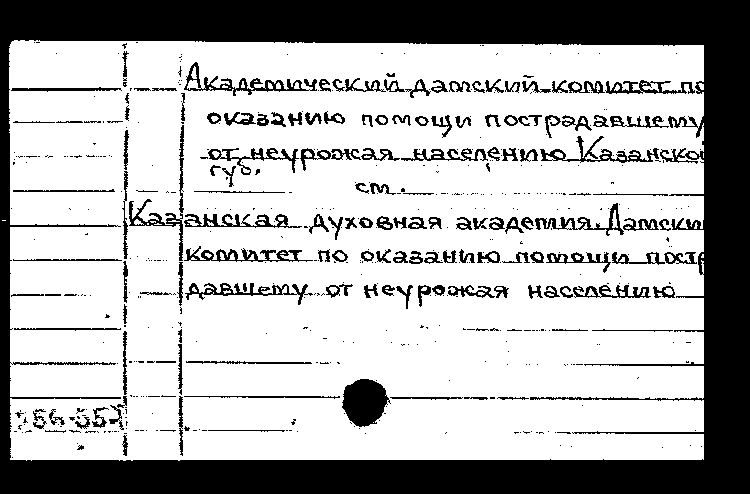 Академический дамский комитет по
оказанию помощи пострадавшему
от неурожая населению Казанской
губ.
см.
Казанская духовная академия. Дамски
комитет по оказанию помощи постр
давшему от неурожая населению